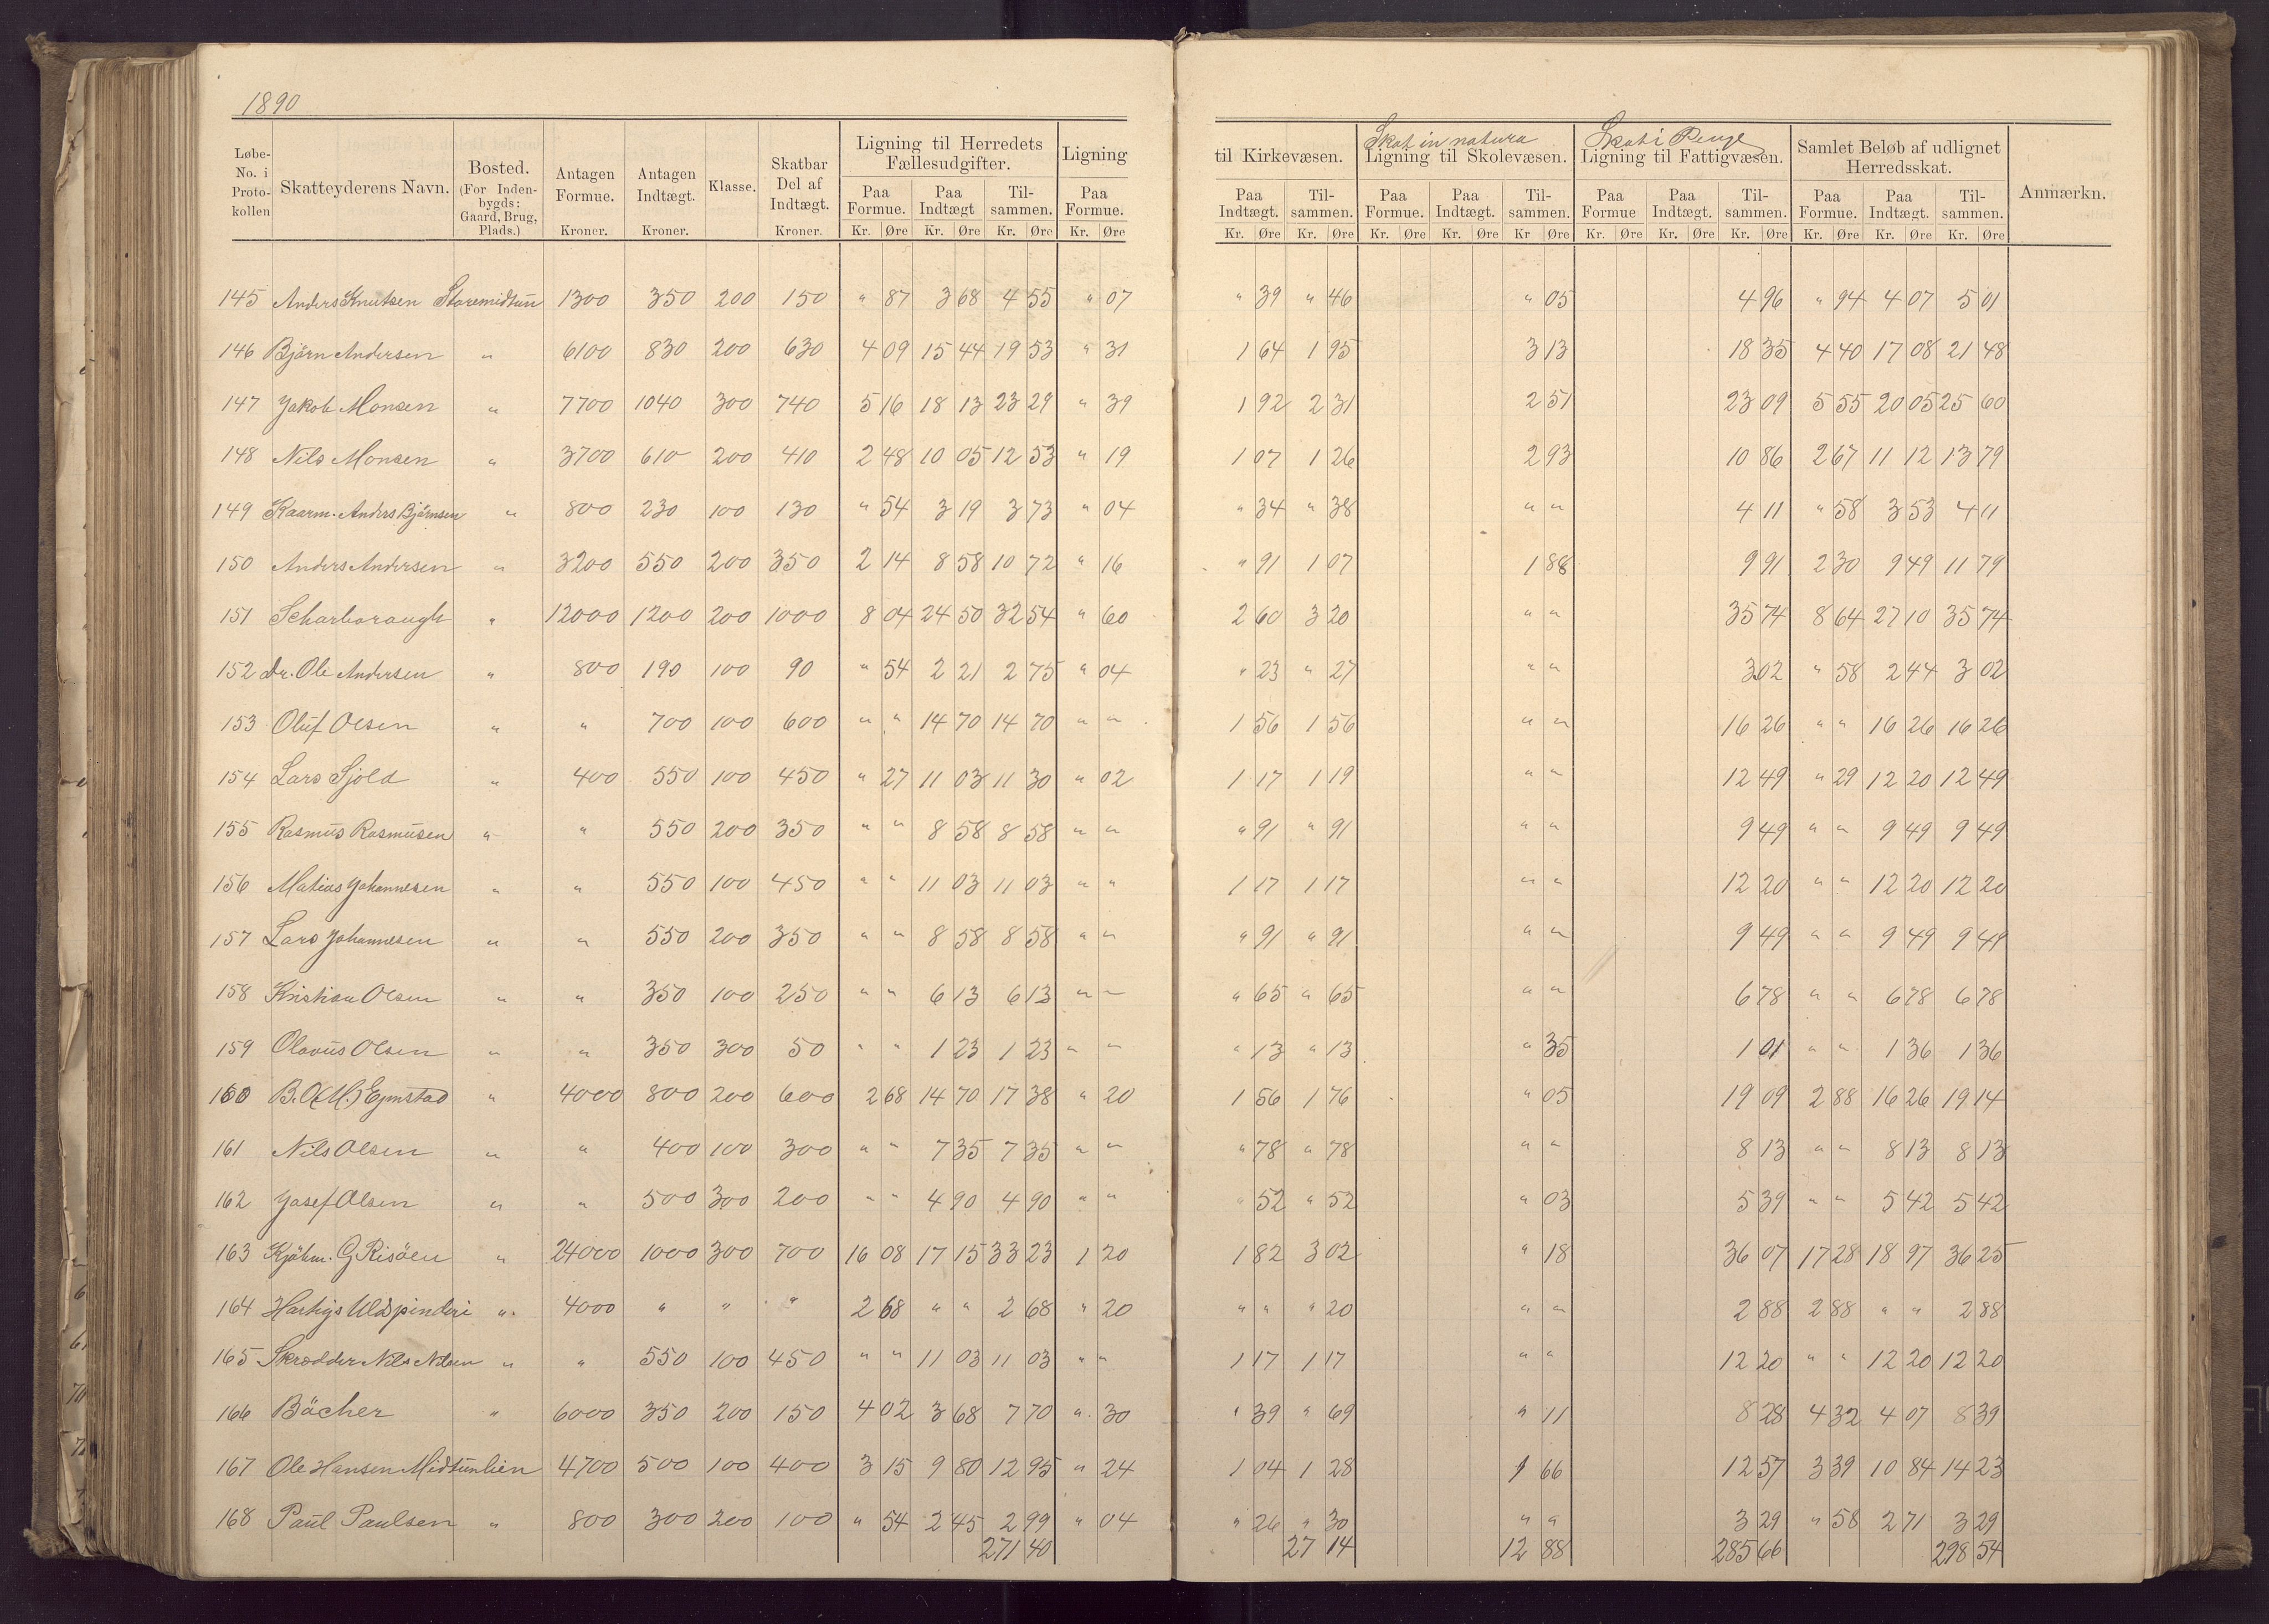 1890
Løbe-No. i Proto-kollen | Skatteyderens Navn. | Bosted. (For Inden-bygds: Gaard, Brug, Plads.) | Antagen Formue. Kroner. | Antagen Indtægt. Kroner. | Klasse. | Skatbar Del af Indtægt. Kroner. | Ligning til Herredets Fællesudgifter. Paa Formue. Kr. Øre | Paa Indtægt Kr. Øre | Til-sammen. Kr. Øre | Ligning Paa Formue. Kr. Øre | til Kirkevæsen. Paa Indtægt. Kr. Øre | Til-sammen. Kr. Øre | Skat in natura Ligning til Skolevæsen. Paa Formue. Kr. Øre | Paa Indtægt. Kr. Øre | Til-sammen. Kr Øre | Skat i Penge Ligning til Fattigvæsen. Paa Formue Kr. Øre | Paa Indtægt. Kr. Øre | Til-sammen. Kr. Øre | Samlet Beløb af udlignet Herredsskat. Paa Formue. Kr. Øre | Paa Indtægt. Kr. Øre | Til-sammen. Kr. Øre | Anmærkn.
145 Anders Knutsen Storemidtun 1300 350 200 150 " 87 3 68 4 55 " 07 " 39 " 46 " 05 4 96 " 94 4 07 5 01
146 Björn Andersen " 6100 830 200 630 4 09 15 44 19 53 " 31 1 64 1 95 3 13 18 35 4 40 17 08 21 48
147 Jakob Monsen " 7700 1040 300 740 5 16 18 13 23 29 " 39 1 92 2 31 2 51 23 09 5 55 20 05 25 60
148 Nils Monsen " 3700 610 200 410 2 48 10 05 12 53 " 19 1 07 1 26 2 93 10 86 2 67 11 12 13 79
149 Kaarm. Anders Björnsen " 800 230 100 130 " 54 3 19 3 73 " 04 " 34 " 38 " " 4 11 " 58 3 53 4 11
150 Anders Andersen " 3200 550 200 350 2 14 8 58 10 72 " 16 " 91 1 07 1 88 9 91 2 30 9 49 11 79
151 Scharboraugh " 12000 1200 200 1000 8 04 24 50 32 54 " 60 2 60 3 20 " " 35 74 8 64 27 10 35 74
152 Dr. Ole Andersen " 800 190 100 90 " 54 2 21 2 75 " 04 " 23 " 27 " " 3 02 " 58 2 44 3 02
153 Oluf Olsen " " 700 100 600 " " 14 70 14 70 " " 1 56 1 56 " " 16 26 " " 16 26 16 26
154 Lars Sjold " 400 550 100 450 " 27 11 03 11 30 " 02 1 17 1 19 " " 12 49 " 29 12 20 12 49
155 Rasmus Rasmusen " " 550 200 350 " " 8 58 8 58 " " " 91 " 91 " " 9 49 " " 9 49 9 49
156 Matias Johannesen " " 550 100 450 " " 11 03 11 03 " " 1 17 1 17 " " 12 20 " " 12 20 12 20
157 Lars Johannesen " " 550 200 350 " " 8 58 8 58 " " " 91 " 91 " " 9 49 " " 9 49 9 49
158 Kristian Olsen " " 350 100 250 " " 6 13 6 13 " " " 65 " 65 " " 6 78 " " 6 78 6 78
159 Olavus Olsen " " 350 300 50 " " 1 23 1 23 " " " 13 " 13 " 35 1 01 " " 1 36 1 36
160 " 4000 800 200 600 2 68 14 70 17 38 " 20 1 56 1 76 " 05 19 09 2 88 16 26 19 14
161 Nils Olsen " " 400 100 300 " " 7 35 7 35 " " " 78 " 78 " " 8 13 " " 8 13 8 13
162 Josef Olsen " " 500 300 200 " " 4 90 4 90 " " " 52 " 52 " 03 5 39 " " 5 42 5 42
163 Kjöbm. G Risöen " 24000 1000 300 700 16 08 17 15 33 23 1 20 1 82 3 02 " 18 36 07 17 28 18 97 36 25
164 Hartvigs Uldspinderi " 4000 " " " 2 68 " " 2 68 " 20 " " " 20 " " 2 88 2 88 " " 2 88
165 Skrædder Nils Nilsen " " 550 100 450 " " 11 03 11 03 " " 1 17 1 17 " " 12 20 " " 12 20 12 20
166 Bächer " 6000 350 200 150 4 02 3 68 7 70 " 30 " 39 " 69 " 11 8 28 4 32 4 07 8 39
167 Ole Hansen Midtunlien 4700 500 100 400 3 15 9 80 12 95 " 24 1 04 1 28 1 66 12 57 3 39 10 84 14 23
168 Paul Paulsen " 800 300 200 100 " 54 2 45 2 99 " 04 " 26 " 30 " " 3 29 " 58 2 71 3 29
271 40 27 14 12 88 285 66 298 54